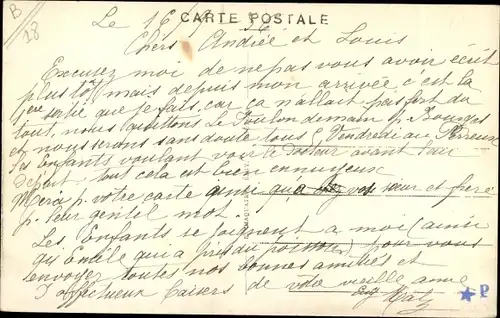 B
28
CARTE POSTALE
Le 16
Chers Andrée et Louis
Excusez moi de ne pas vous avoir écrit
plus tôt mais depuis mon arrivée c'est la
1ère sortie que je fais, car ça n'allait pas fort du
tout, nous quittons Toulon demain p. Bourges
et nous serons sans doute tous Vendredi au Perreux
les Enfants voulant voir le Docteur avant leur
départ tout cela est bien ennuyeux
Merci p. votre carte ainsi qu'a vos sœur et frère
p. leur gentil mot.
Les Enfants se joignent a moi (ainsi
qu'Emile qui a pour vous
envoyer toutes nos bonnes amitiés et
d'affectueux baisers de votre vieille amie
P